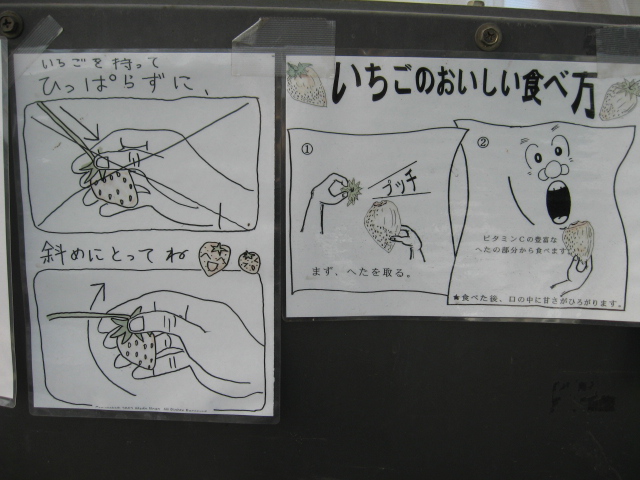 いちごを持って
ひっぱらずに、
斜めにとってね
いちごのおいしい食べ方
①
プッチ
まず、へたを取る。
②
ビタミンCの豊富な
へたの部分から食べます
★食べた後、口の中に甘さがひろがります。